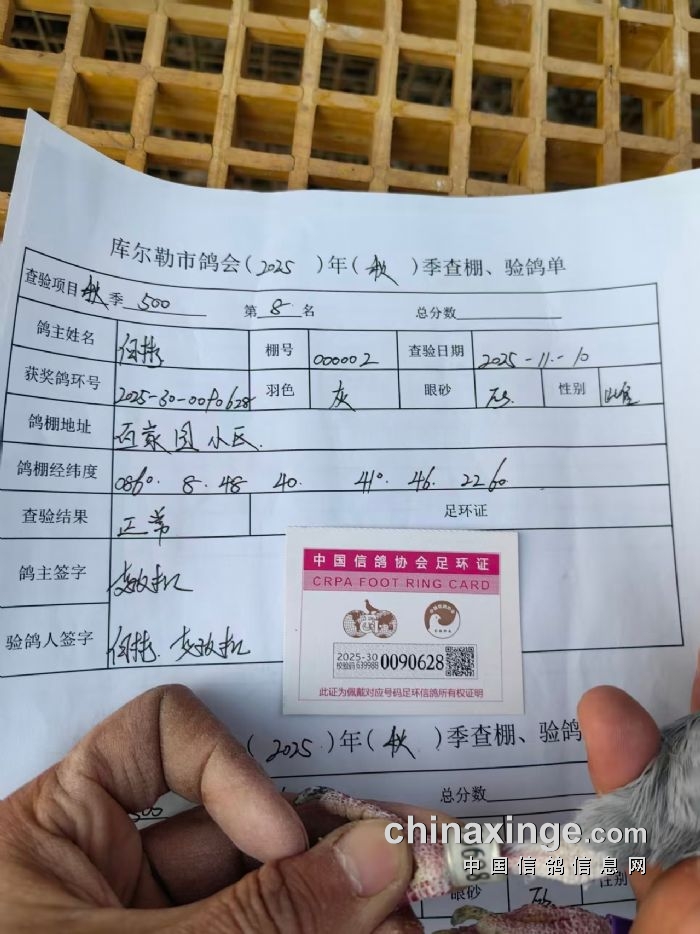 库尔勒市鸽会(2025 )年(秋 )季查棚、验鸽单
查验项目 秋 季 500 第 8 名 总分数
鸽主姓名 棚号 000002 查验日期 2025-11-10
获奖鸽环号 2025-30-0090628 羽色 灰 眼砂 性别 雌
鸽棚地址 百家园小区
鸽棚经纬度 086°. 8. 48 40. 41°. 46. 2260
查验结果 正常 足环证
鸽主签字
验鸽人签字
中国信鸽协会足环证
CRPA FOOT RING CARD
2025-30
校验码 639988 0090628
此证为佩戴对应号码足环信鸽所有权证明
(2025 )年(秋 )季查棚、验鸽
总分数
500
眼砂 性别
628
chinaxinge.com
中国信鸽信息网